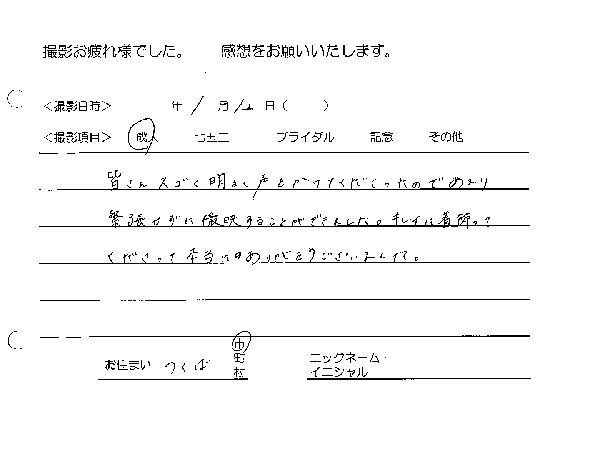 撮影お疲れ様でした。 感想をお願いいたします。
<撮影日時> 年 / 月 / 日( )
<撮影項目> 成人 七五三 ブライダル 記念 その他
皆さんスゴく明るく声をかけてくださったのであまり
緊張せずに撮映することができました。キレイに着飾って
くださって本当にありがとうございました。
お住まい つくば 市
町
村
ニックネーム・
イニシャル